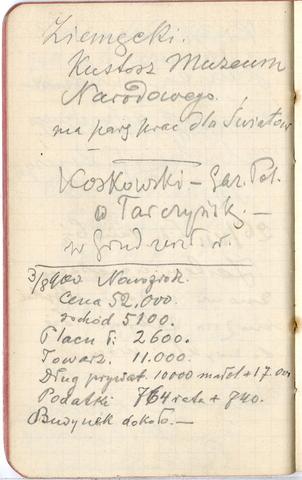 Ziemęcki.
Kustosz Muzeum
Narodowego.
ma parę prac dla Światow
Koskowski – Gaz. Pol.
Tarczyńsk. –
w
3/8900 Nawojok.
Cena 52.000.
dochód 5100.
Placu ł: 2600.
Towarz. 11.000.
Dług prywat. 10000 małol + 17.000
Podatki 764 rata + 840.
Budynek dokoło. –